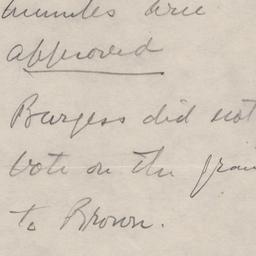 minutes were
approved
Burgess did not
vote on the
to Brown.